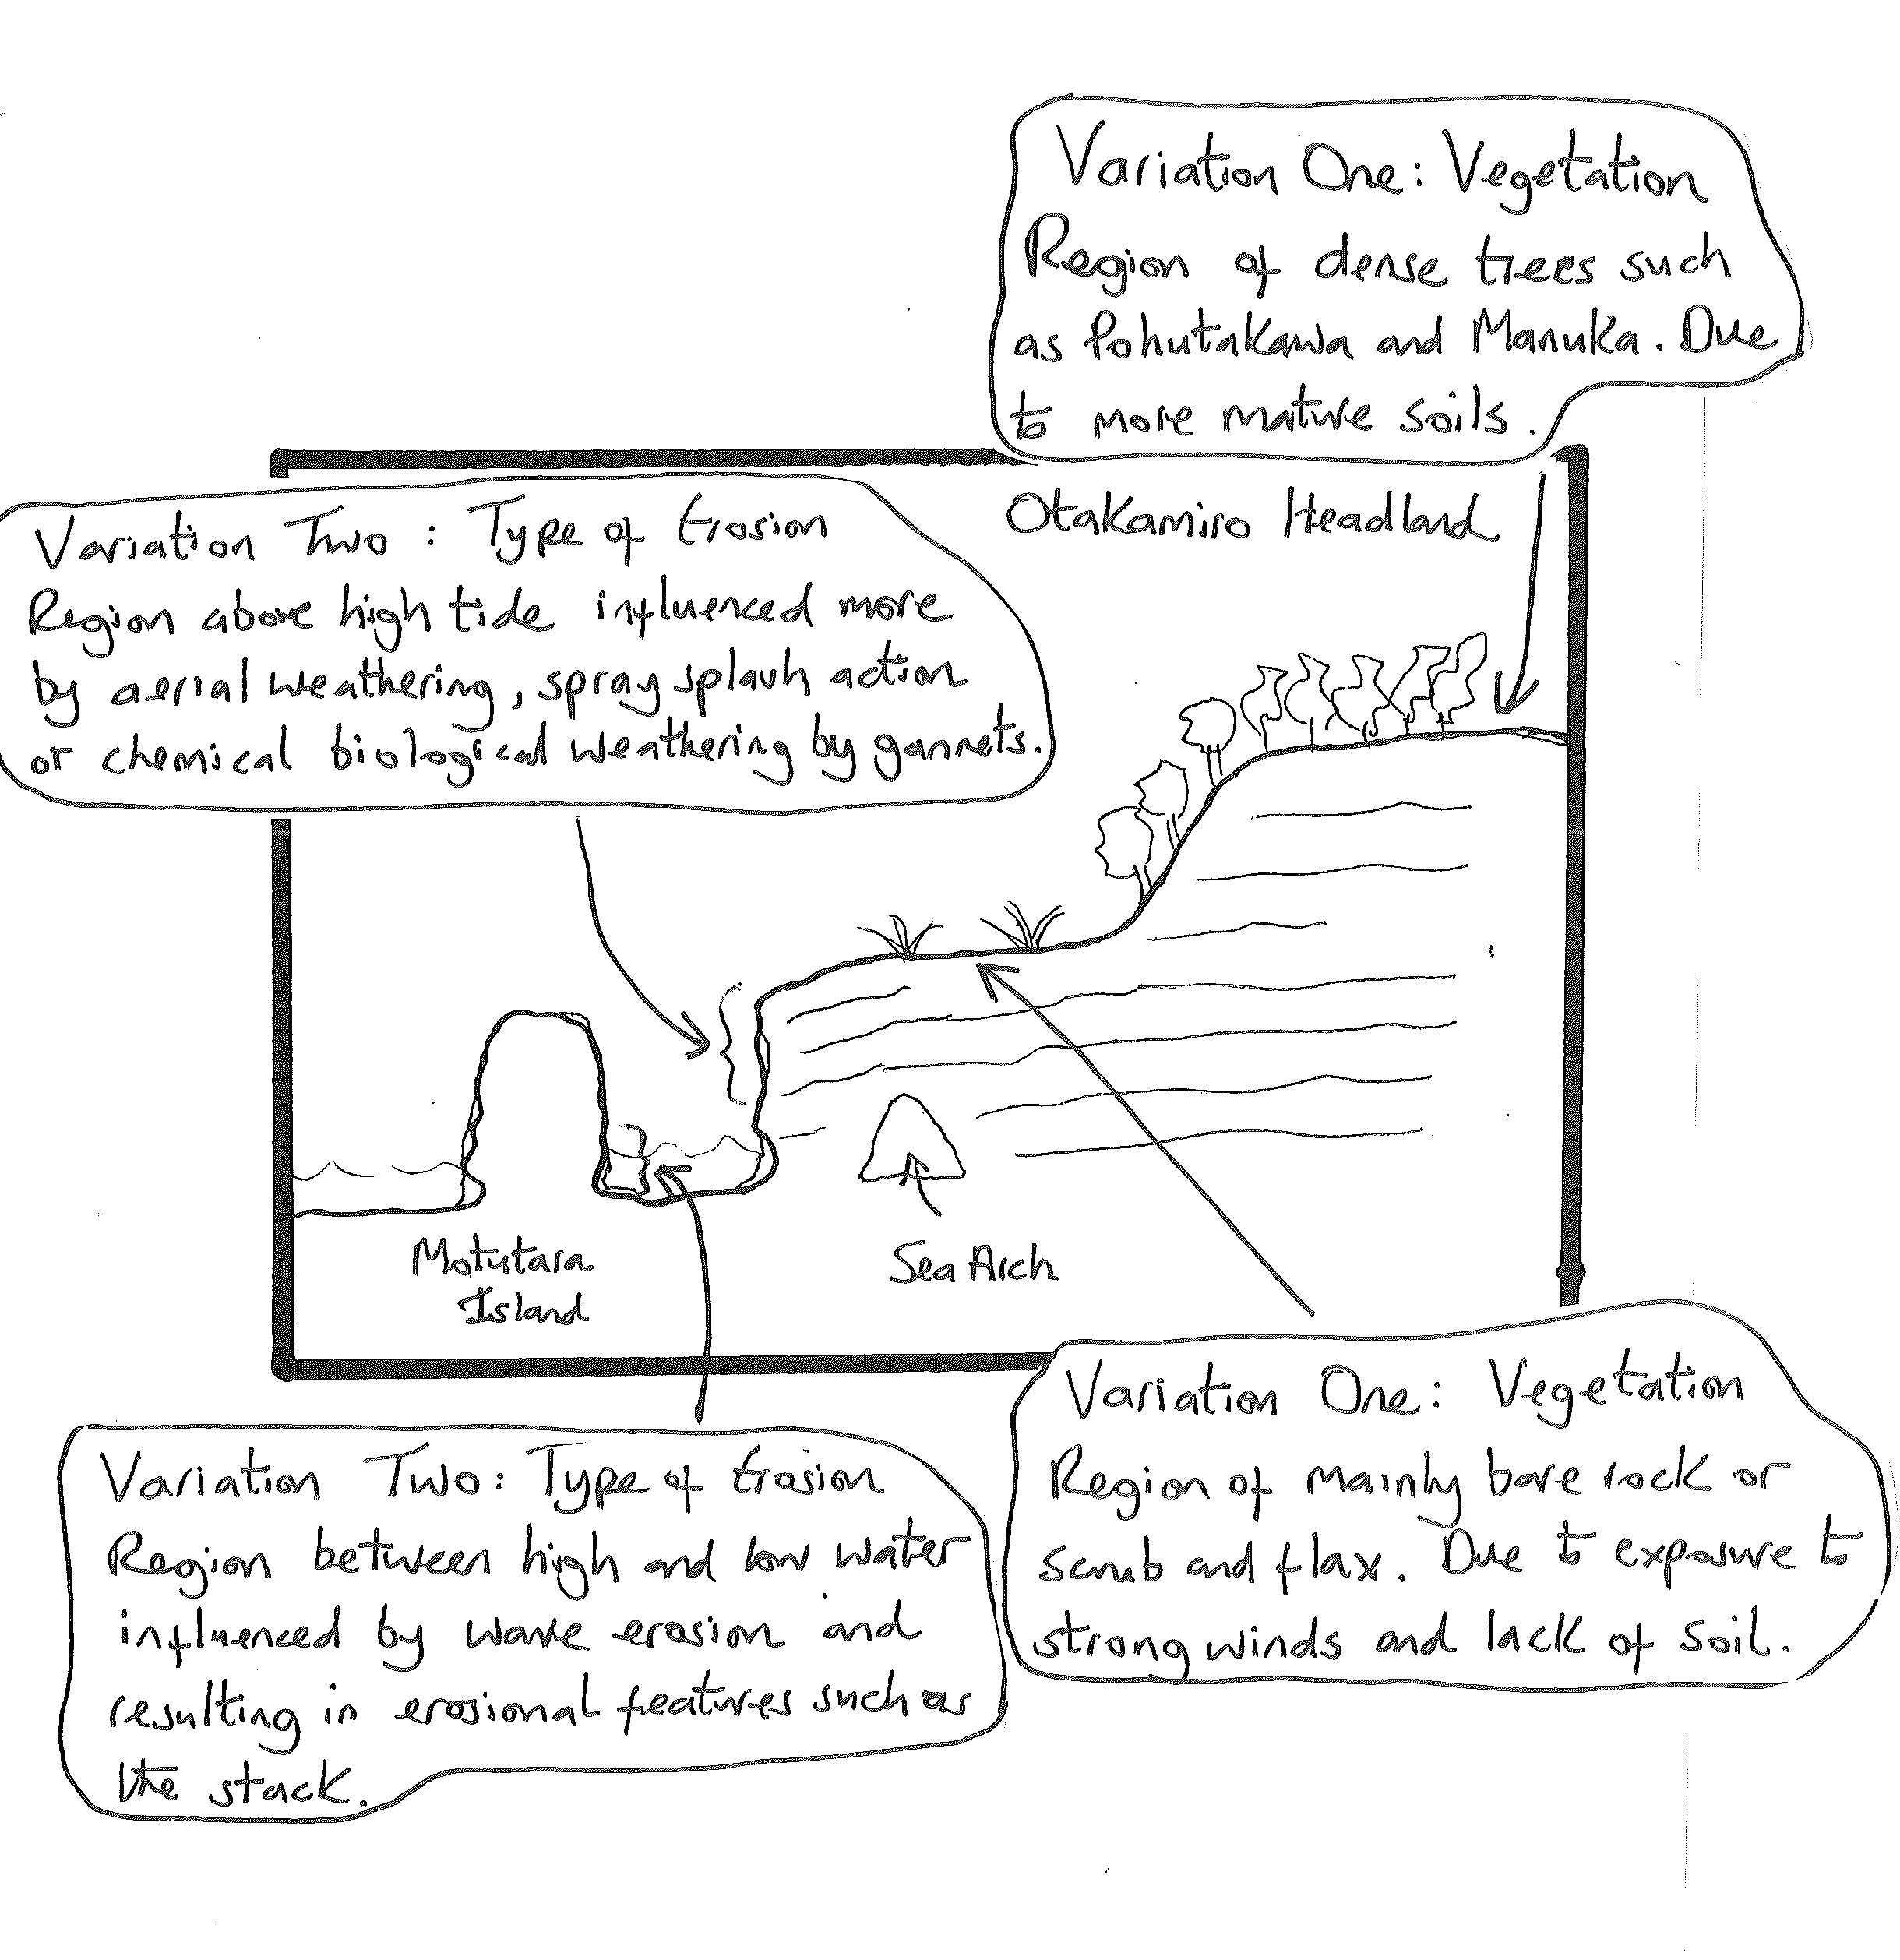 Variation One: Vegetation
Region of dense trees such
as Pohutakawa and Manuka. Due
to more mature soils.
Otakamiro Headland
Variation Two: Type of Erosion
Region above high tide influenced more
by aerial weathering, spray splash action
or chemical biological weathering by gannets.
Motutara
Island
Sea Arch
Variation Two: Type of Erosion
Region between high and low water
influenced by wave erosion and
resulting in erosional features such as
the stack.
Variation One: Vegetation
Region of mainly bare rock or
scrub and flax. Due to exposure to
strong winds and lack of soil.